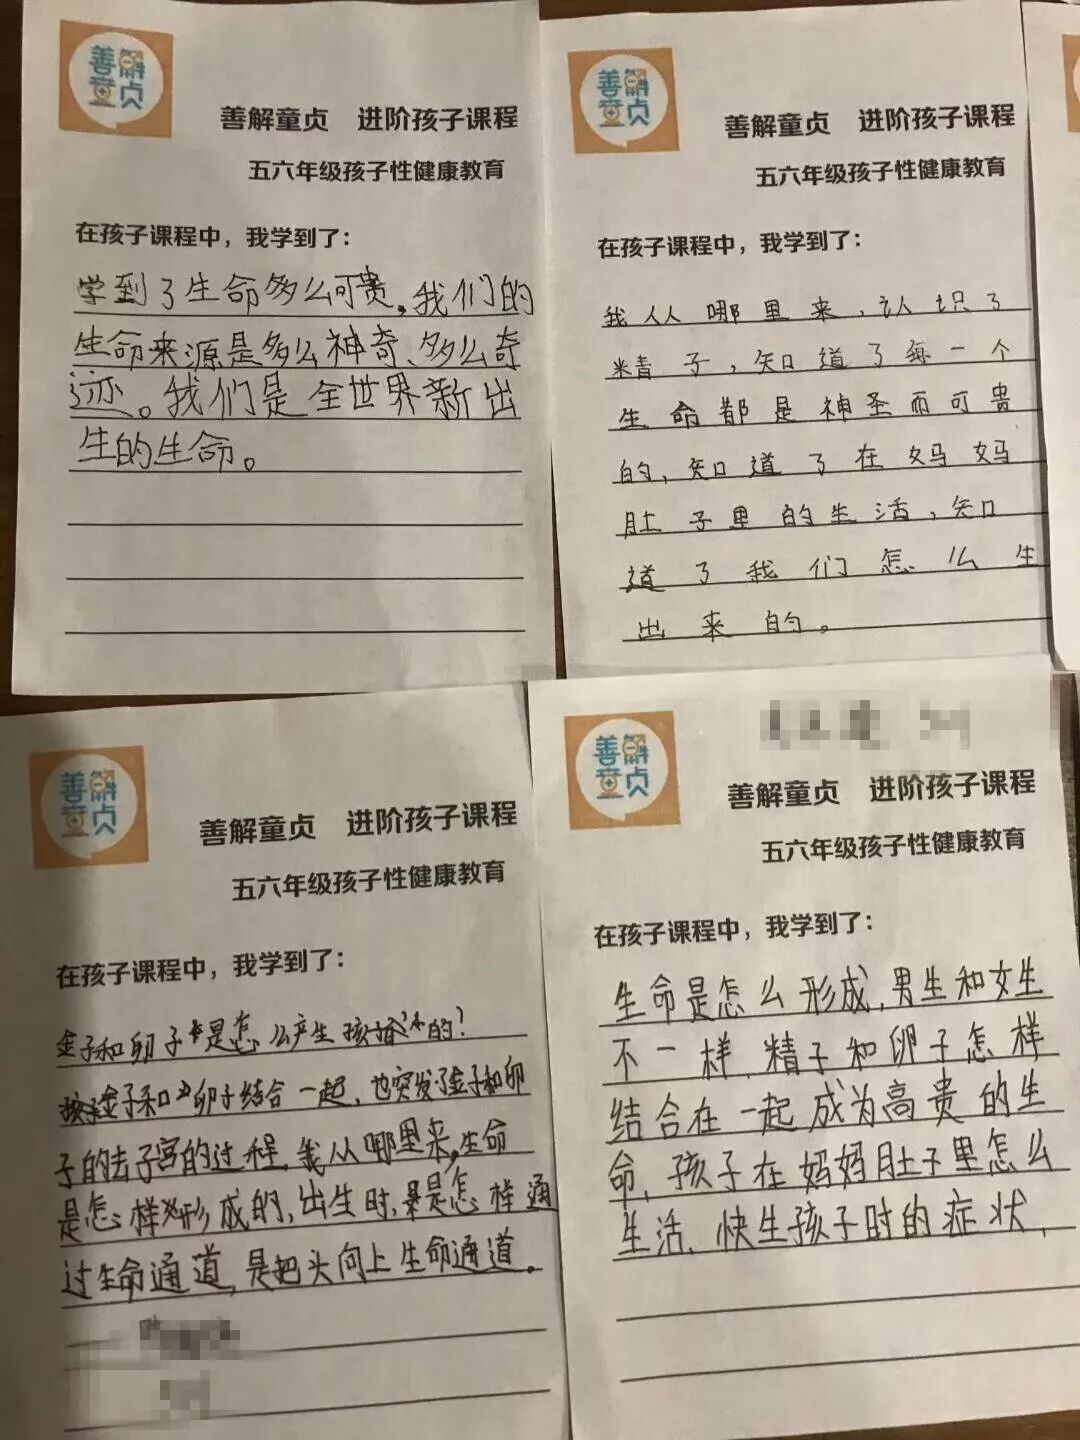 善解
童贞
善解童贞 进阶孩子课程
五六年级孩子性健康教育
在孩子课程中，我学到了：
学到了生命多么可贵。我们的
生命来源是多么神奇、多么奇
迹。我们是全世界新出
生的生命。
善解
童贞
善解童贞 进阶孩子课程
五六年级孩子性健康教育
在孩子课程中，我学到了：
我从哪里来，认识了
精子，知道了每一个
生命都是神圣而可贵
的，知道了在妈妈
肚子里的生活，知
道了我们怎么生
出来的。
善解
童贞
善解童贞 进阶孩子课程
五六年级孩子性健康教育
在孩子课程中，我学到了：
金子和卵子是怎么产生孩的？
金子和卵子结合一起，也突发了金子和卵
子的去子宫的过程，我从哪里来，生命
是怎样形成的，出生时，是怎样通
过生命通道，是把头向上生命通道。
善解
童贞
善解童贞 进阶孩子课程
五六年级孩子性健康教育
在孩子课程中，我学到了：
生命是怎么形成，男生和女生
不一样，精子和卵子怎样
结合在一起成为高贵的生
命，孩子在妈妈肚子里怎么
生活，快生孩子时的症状，